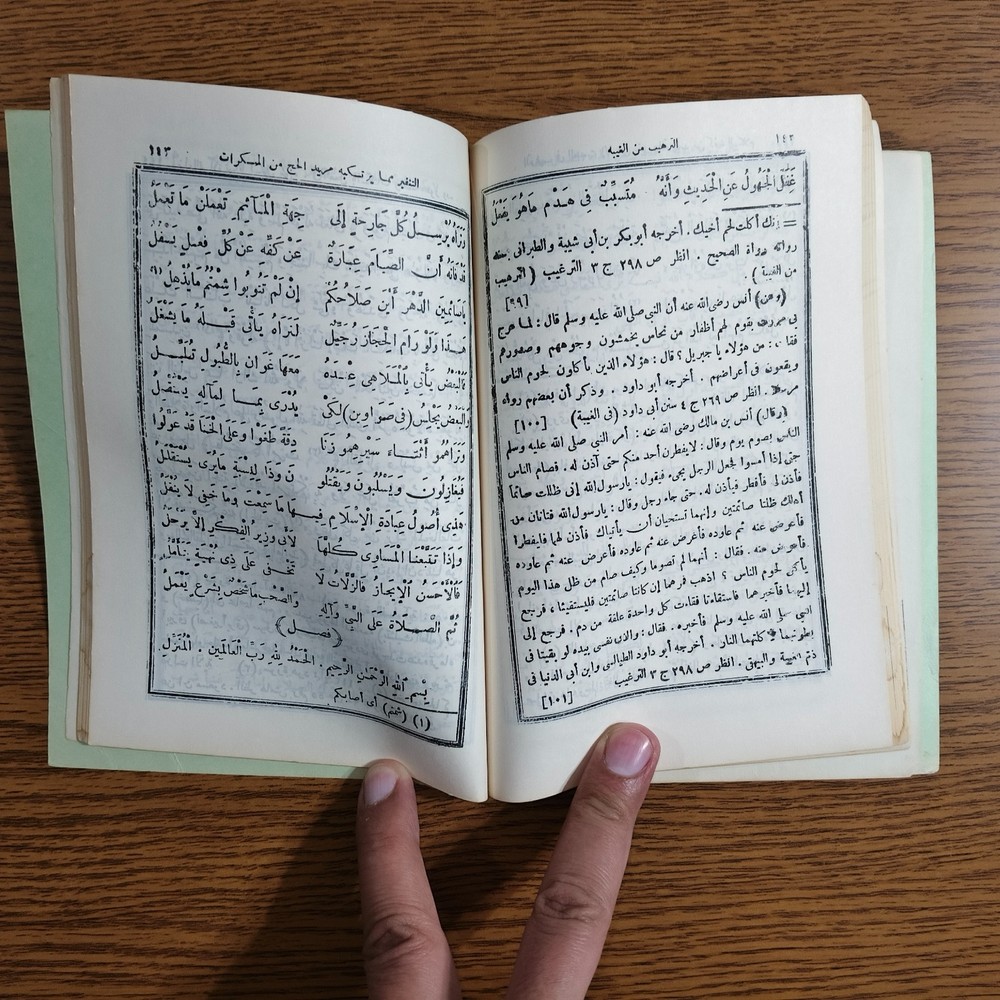 ١٤٢
الترهيب من الغيبة
غَفَلَ الْجَهُولُ عَنِ الْحَدِيثِ وَأَنَّهُ مُتَسَبِّبٌ فِي هَدْمِ مَا هُوَ يَفْعَلُ
= إنك أكلت لحم أخيك . أخرجه أبو بكر بن أبي شيبة والطبراني
رواته رواة الصحيح . انظر ص ٢٩٨ ج ٣ الترغيب ( الترهيب
من الغيبة ) .
[٩٩]
(وعن) أنس رضى الله عنه أن النبى صلى الله عليه وسلم قال : لما عرج
بى مررت بقوم لهم أظفار من نحاس يخمشون وجوههم وصدورهم
فقلت : من هؤلاء يا جبريل ؟ قال : هؤلاء الذين يأكلون لحوم الناس
ويقعون فى أعراضهم . أخرجه أبو داود . وذكر أن بعضهم رواه
مرسلا . انظر ص ٢٦٩ ج ٤ سنن أبى داود (فى الغيبة) [١٠٠]
(وقال) أنس بن مالك رضى الله عنه : أمر النبى صلى الله عليه وسلم
الناس بصوم يوم وقال : لا يفطرن أحد منكم حتى آذن له . فصام الناس
حتى إذا أمسوا فجعل الرجل يجىء فيقول : يا رسول الله إنى ظللت صائما
فأذن لى فأفطر فيأذن له . حتى جاء رجل وقال : يا رسول الله فتاتان من
أهلك ظلتا صائمتين وإنهما تستحيان أن يأتياك فأذن لهما فليفطرا
فأعرض عنه ثم عاوده فأعرض عنه ثم عاوده فأعرض عنه ثم عاوده
فأعرض عنه . فقال : أنهما لم تصوما وكيف صام من ظل هذا اليوم
يأكل لحوم الناس ؟ اذهب فرهما إن كانتا صائمتين فليستقيئا ، فرجع
إليهما فأخبرهما فاستقاءتا فقاءت كل واحدة علقة من دم . فرجع إلى
النبى صلى الله عليه وسلم فأخبره . فقال : والذى نفسى بيده لو بقيتا فى
بطونهما لأكلتهما النار . أخرجه أبو داود الطيالسى وابن أبى الدنيا فى
ذم الغيبة والبيهقى . انظر ص ٢٩٨ ج ٣ الترغيب
[١٠١]
١٤٣
التنفير مما يرتكبه مريد الحج من المسكرات
وَتَرَاهُ يُرْسِلُ كُلَّ جَارِحَةٍ إِلَى جِهَةِ الْمَآثِمِ تَعْمَلَنْ مَا تَعْمَلُ
قَدْ فَاتَهُ أَنَّ الصِّيَامَ عِبَارَةٌ عَنْ كَفِّهِ عَنْ كُلِّ فِعْلٍ يَسْفُلُ
يَا صَائِمِينَ الدَّهْرَ أَيْنَ صَلَاحُكُمْ إِنْ لَمْ تَتُوبُوا شِمْتُمُ مَا يُذْهِلُ (١)
هَذَا وَلَوْ رَامَ الْحِجَازَ رُجَيْلٌ لَتَرَاهُ يَأْتِي قَبْلَهُ مَا يَشْغَلُ
فَالْبَعْضُ يَأْتِي بِالْمَلَاهِي عِنْدَهُ مَعَهَا غَوَانٍ بِالطُّبُولِ تُطَبِّلُ
وَالْبَعْضُ يَجْلِسُ (فِي صَوَاوِينٍ) لِكَيْ يُدْرَى بِمَا لِمَآلِهِ يَسْتَقْبِلُ
وَتَرَاهُمُو أَثْنَاءَ سَيْرِهِمُو زَنَا دِقَةً طَغَوْا وَعَلَى الْخَنَا قَدْ عَوَّلُوا
فَيُغَازِلُونَ وَيَسْلُبُونَ وَيَقْتُلُو نَ وَذَا لِنِسْبَةِ مَا يُرَى يُسْتَقْلَلُ
هَذِي أُصُولُ عِبَادَةِ الْإِسْلَامِ فِيهَا مَا سَمِعْتَ وَمَا خَفِي لَا يُغْفَلُ
وَإِذَا تَتَبَّعْنَا الْمَسَاوِي كُلَّهَا لَأَتَى وَزِيرُ الْفِكْرِ إِلَّا يَرْحَلُ
فَالْأَحْسَنُ الْإِيجَازُ فَالزَّلَّاتُ لَا تَخْفَى عَلَى ذِي نُهْيَةٍ يَتَأَمَّلُ
ثُمَّ الصَّلَاةُ عَلَى النَّبِيِّ وَآلِهِ وَالصَّحْبِ مَا شَخْصٌ بِشَرْعٍ يَعْمَلُ
( فصل )
بِسْمِ اللهِ الرَّحْمٰنِ الرَّحِيمِ . الْحَمْدُ لِلهِ رَبِّ الْعَالَمِينَ . الْمُنَزِّلِ
(١) (شمتم) أى أصابكم